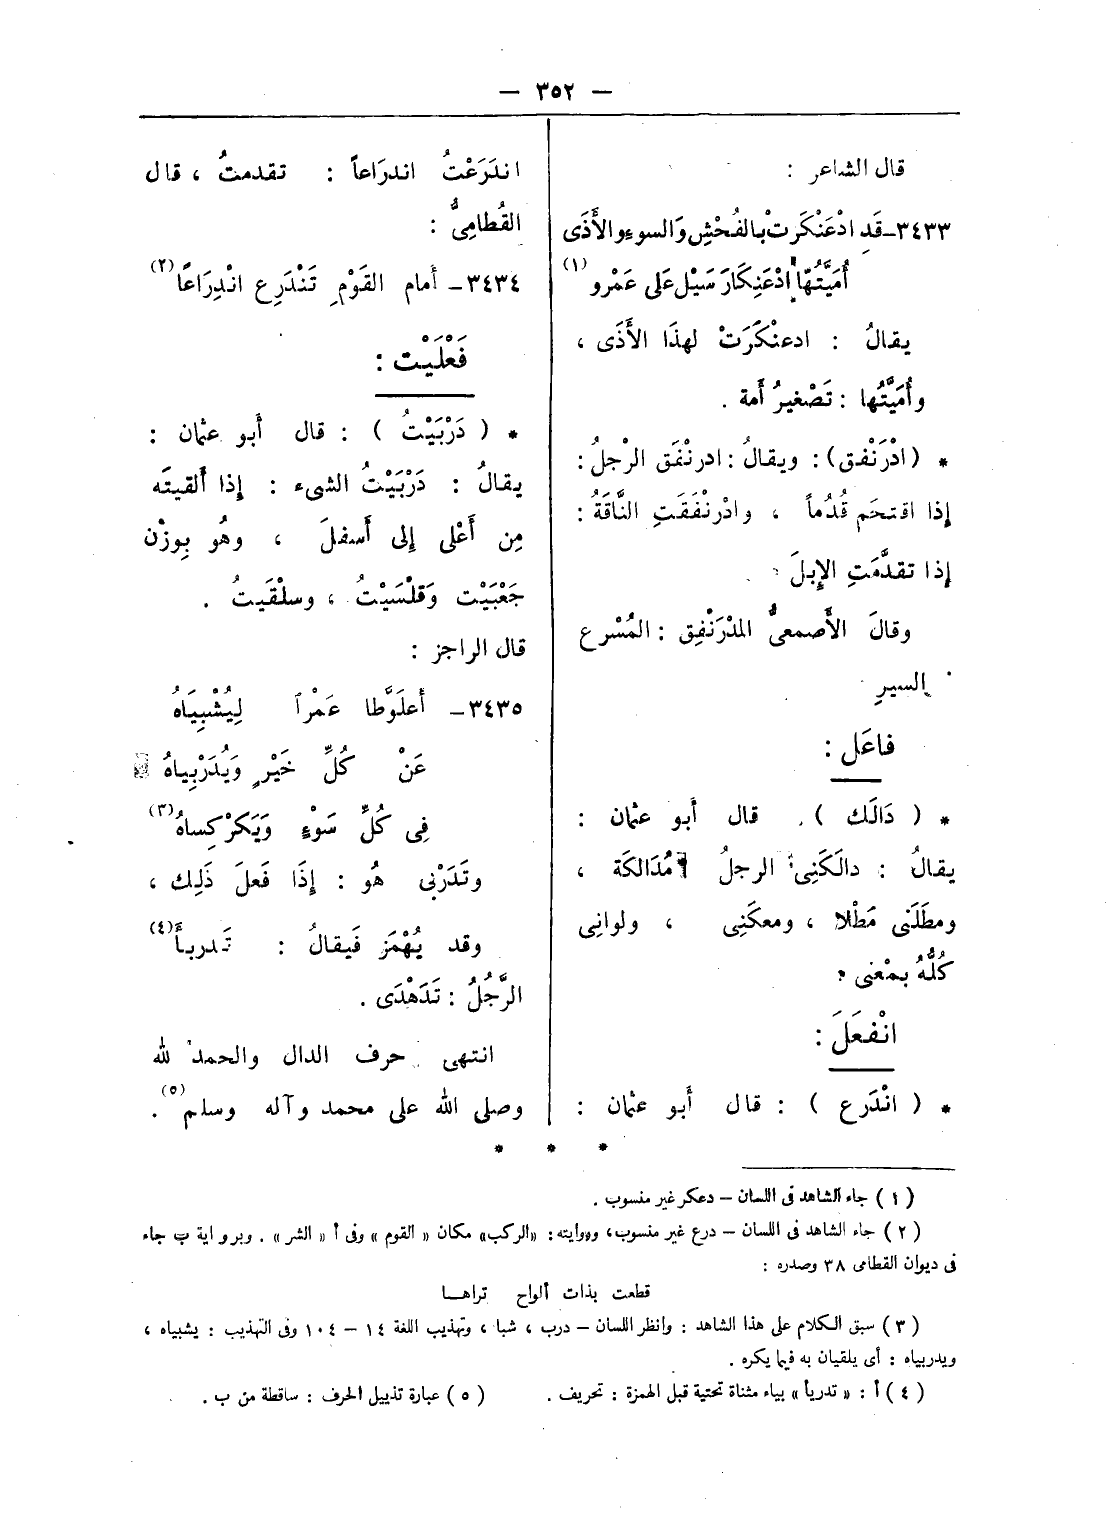 — ٣٥٢ —
قال الشاعر :
٣٤٣٣ـ قَدِ ادْعَنْكَرَتْ بالفُحْشِ وَالسوءِ والأَذَى
أُمَيَّتُهَا ادْعَنِكَارَ سَيْلٍ عَلَى عَمْرو (١)
يقالُ : ادعنْكَرَتْ لهذَا الأَذَى ،
وأُمَيَّتُها : تَصْغيرُ أَمة .
* (ادْرَنْفق) : ويقالُ : ادرنْفَق الرجلُ :
إذا اقتحَم قُدُماً ، وادْرنْفَقَتِ النَّاقَةُ :
إذا تقدَّمَتِ الإِبلَ
وقالَ الأَصمعىُّ المدْرَنْفِق : المُسْرع
السيرِ
فاعَل :
* ( دَالَك ) . قال أَبو عثمان :
يقالُ : دالَكَنِى الرجلُ مُدَالكَة ،
ومطَلَنى مَطْلا ، ومعكَنِى ، ولوانِى
كُلُّهُ بمْعنى
انْفعَلَ :
* ( انْدَرع ) : قال أَبو عثمان :
اندَرَعْتُ اندرَاعاً : تقدمتُ ، قال
القُطامِىُّ :
٣٤٣٤ـ أَمام القَوْمِ تَنْدَرِع انْدِرَاعًا (٢)
فَعْلَيْت :
* ( دَرْبَيْتُ ) : قال أَبو عثمان :
يقالُ : دَرْبَيْتُ الشىء : إذا أَلقيتَه
مِن أَعْلى إلى أَسفلَ ، وهُو بِوزْن
جَعْبَيْت وَقلْسَيْتُ ، وسلْقَيتُ .
قال الراجز :
٣٤٣٥ـ أَعلَوَّطا عَمْراً لِيُشْبِيَاهُ
عَنْ كُلِّ خَيْرٍ وَيُدَرْبِياهُ
فِى كُلِّ سَوْءٍ وَيَكَرْكِساهُ (٣)
وتَدَرْبى هُو : إذَا فَعلَ ذَلِك ،
وقد يُهْمَز فَيقالُ : تَدربأَ (٤)
الرَّجُلُ : تَدَهْدَى .
انتهى حرف الدال والحمد لله
وصلى الله على محمد وآله وسلم (٥) .
* * *
( ١ ) جاء الشاهد فى اللسان – دعكر غير منسوب .
( ٢ ) جاء الشاهد فى اللسان – درع غير منسوب، وروايته : «الركب» مكان « القوم » وفى أ « الشر » . وبرواية ب جاء
فى ديوان القطامى ٣٨ وصدره :
قطعت بذات ألواح تراهـا
( ٣ ) سبق الكلام على هذا الشاهد : وانظر اللسان – درب ، شبا ، وتهذيب اللغة ١٤ – ١٠٤ وفى التهذيب : يشبياه ،
ويدربياه : أى يلقيان به فيما يكره .
( ٤ ) أ : « تدريأ » بياء مثناة تحتية قبل الهمزة : تحريف . ( ٥ ) عبارة تذييل الحرف : ساقطة من ب .